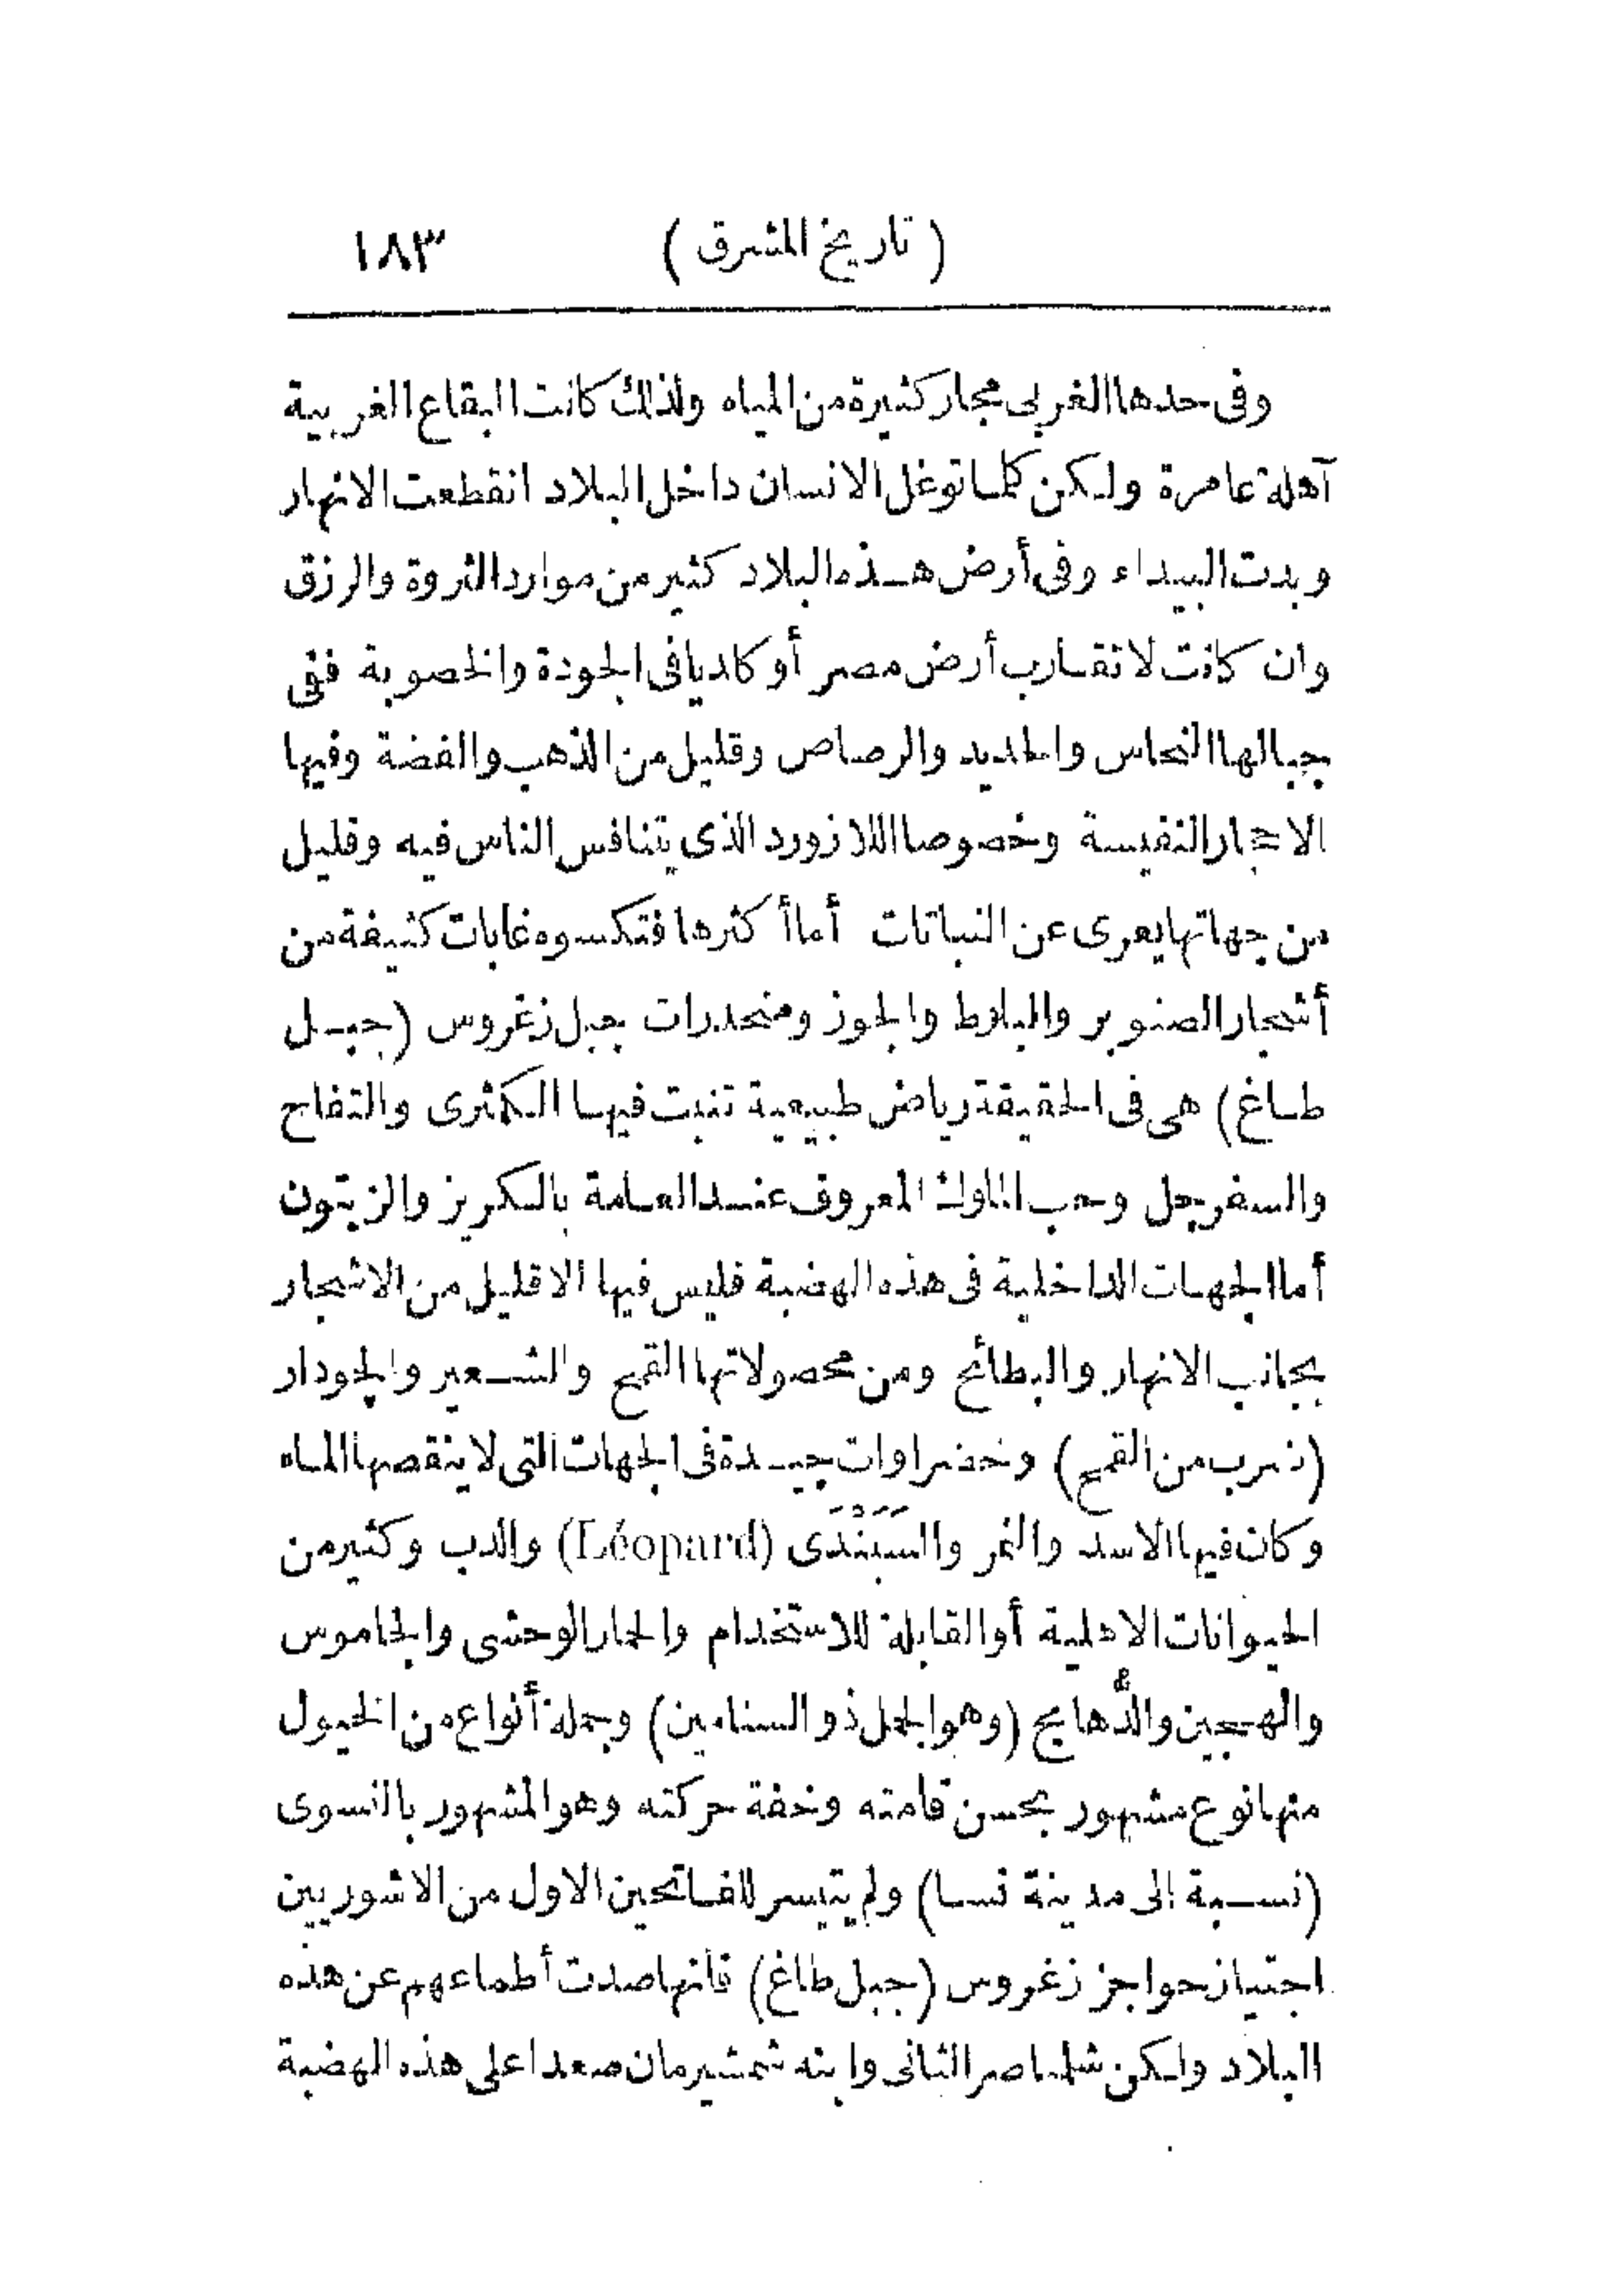 ( تاريخ المشرق ) ١٨٣
وفى حدها الغربى مجار كثيرة من المياه ولذلك كانت البقاع الغربية
آهلة عامرة ولكن كلما توغل الانسان داخل البلاد انقطعت الانهار
وبدت البيداء وفى أرض هذه البلاد كثير من موارد الثروة والرزق
وان كانت لا تقارب أرض مصر أو كاديا فى الجودة والخصوبة ففى
جبالها النحاس والحديد والرصاص وقليل من الذهب والفضة وفيها
الاحجار النفيسة وخصوصا اللازورد الذى يتنافس الناس فيه وقليل
من جهاتها يعرى عن النباتات أما أكثرها فتكسوه غابات كثيفة من
أشجار الصنوبر والبلوط والجوز ومنحدرات جبل زغروس (جبل
طاغ) هى فى الحقيقة رياض طبيعية تنبت فيها الكمثرى والتفاح
والسفرجل وحب الملوك المعروف عند العامة بالكريز والزيتون
أما الجهات الداخلية فى هذه الهضبة فليس فيها الا قليل من الاشجار
بجانب الانهار والبطائح ومن محصولاتها القمح والشعير والچودار
(ضرب من القمح) وخضراوات جيدة فى الجهات التى لا ينقصها الماء
وكان فيها الاسد والنمر والسَبَنْدَى (Léopard) والدب وكثير من
الحيوانات الاهلية أو القابلة للاستخدام والحمار الوحشى والجاموس
والهجين والدُّهامج (وهو الجمل ذو السنامين) وجملة أنواع من الخيول
منها نوع مشهور بحسن قامته وخفة حركته وهو المشهور بالنسوى
(نسبة الى مدينة نسا) ولم يتيسر للفاتحين الاول من الاشوريين
اجتياز حواجز زغروس (جبل طاغ) فانها صدت أطماعهم عن هذه
البلاد ولكن شلمناصر الثانى وابنه شمشيرمان صعدا على هذه الهضبة